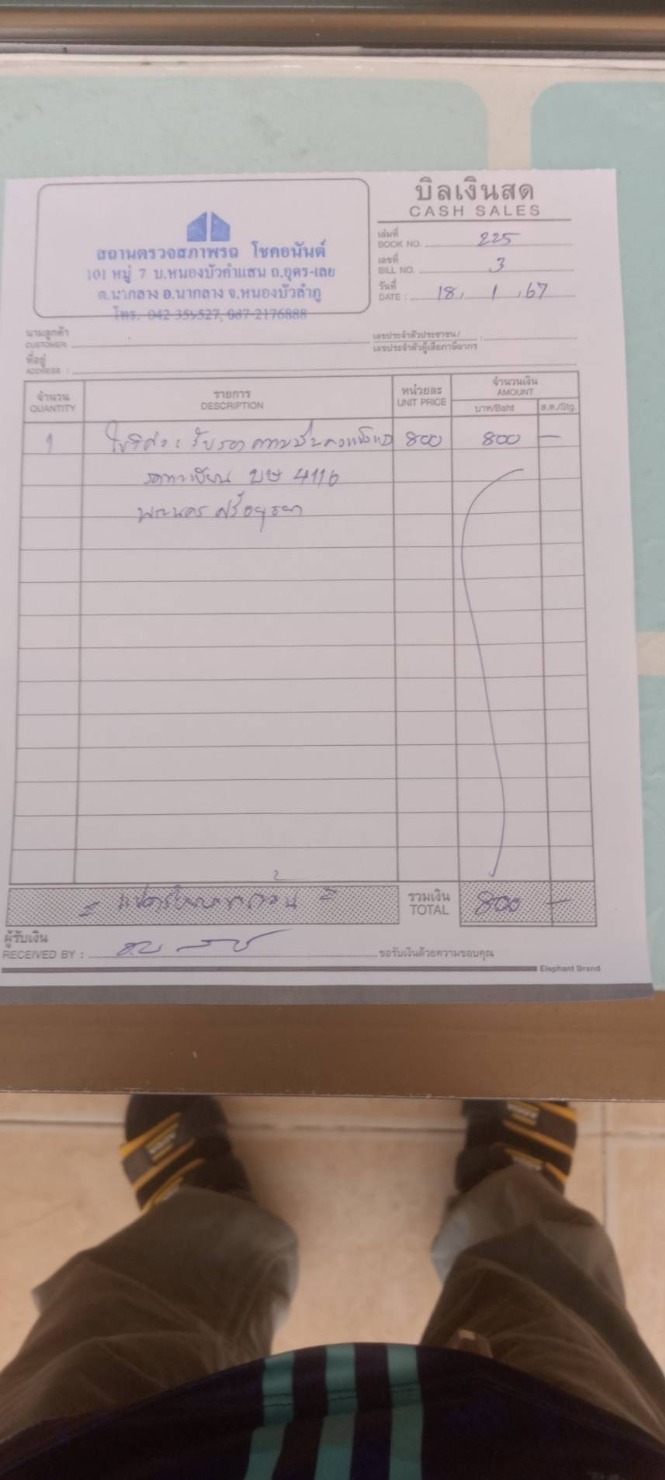 บิลเงินสด
CASH SALES
สถานตรวจสภาพรถ โชคอนันต์
101 หมู่ 7 บ.หนองบัวคำแสน ถ.อุดร-เลย
ต.นากลาง อ.นากลาง จ.หนองบัวลำภู
โทร. 042-359527, 087-2176888
เล่มที่
BOOK NO. 225
เลขที่
BILL NO. 3
วันที่
DATE : 18, 1, 67
นามลูกค้า
CUSTOMER
เลขประจำตัวประชาชน/
เลขประจำตัวผู้เสียภาษีอากร :
ที่อยู่
ADDRESS :
จำนวน
QUANTITY
รายการ
DESCRIPTION
หน่วยละ
UNIT PRICE
จำนวนเงิน
AMOUNT
บาท/Baht ส.ต./Stg.
1 รับรองความมั่นคงแข็งแรง 800 800 –
รถทะเบียน บษ 4116
พระนครศรีอยุธยา
= แปดร้อยบาทถ้วน =
รวมเงิน
TOTAL 800 –
ผู้รับเงิน
RECEIVED BY :
ขอรับเงินด้วยความขอบคุณ
Elephant Brand